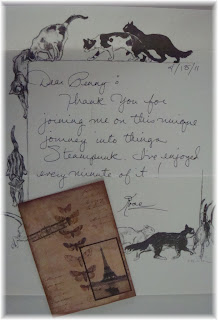 4/15/11
Dear Penny:
Thank you for
joining me on this unique
journey into things
Steampunk. I've enjoyed
every minute of it!